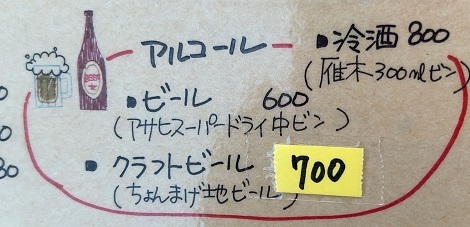 アルコール
▪冷酒 800
(雁木300mlビン)
▪ビール 600
(アサヒスーパードライ中ビン)
▪クラフトビール 700
(ちょんまげ地ビール)
BEER